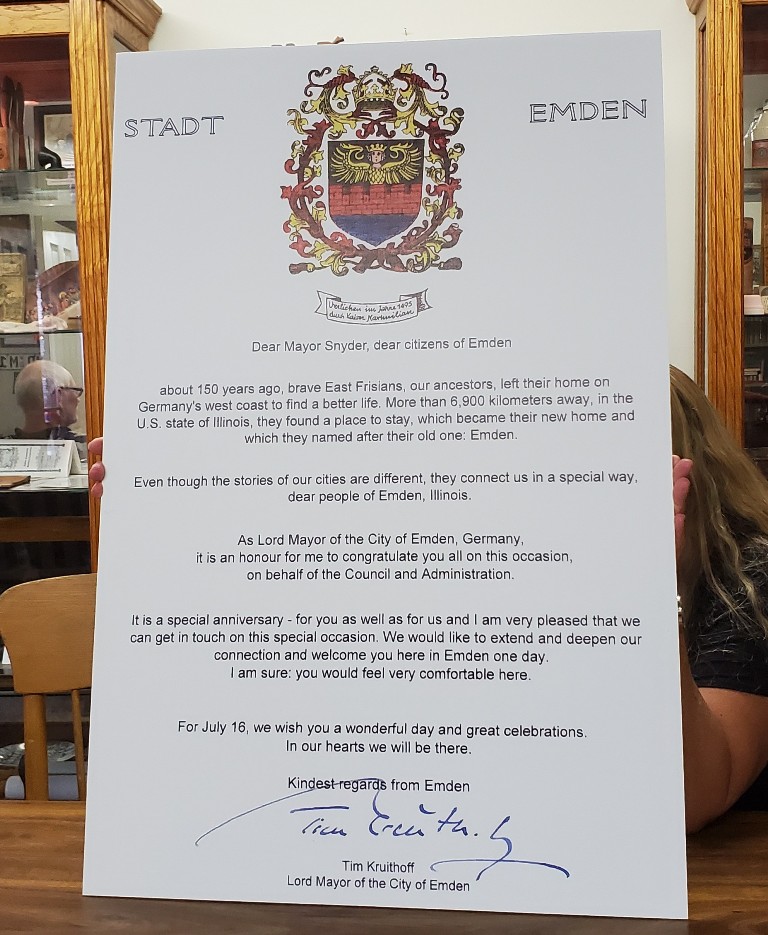 STADT EMDEN
Verliehen im Jahre 1495
durch Kaiser Maximilian
Dear Mayor Snyder, dear citizens of Emden
about 150 years ago, brave East Frisians, our ancestors, left their home on
Germany's west coast to find a better life. More than 6,900 kilometers away, in the
U.S. state of Illinois, they found a place to stay, which became their new home and
which they named after their old one: Emden.
Even though the stories of our cities are different, they connect us in a special way,
dear people of Emden, Illinois.
As Lord Mayor of the City of Emden, Germany,
it is an honour for me to congratulate you all on this occasion,
on behalf of the Council and Administration.
It is a special anniversary - for you as well as for us and I am very pleased that we
can get in touch on this special occasion. We would like to extend and deepen our
connection and welcome you here in Emden one day.
I am sure: you would feel very comfortable here.
For July 16, we wish you a wonderful day and great celebrations.
In our hearts we will be there.
Kindest regards from Emden
Tim Kruithoff
Lord Mayor of the City of Emden